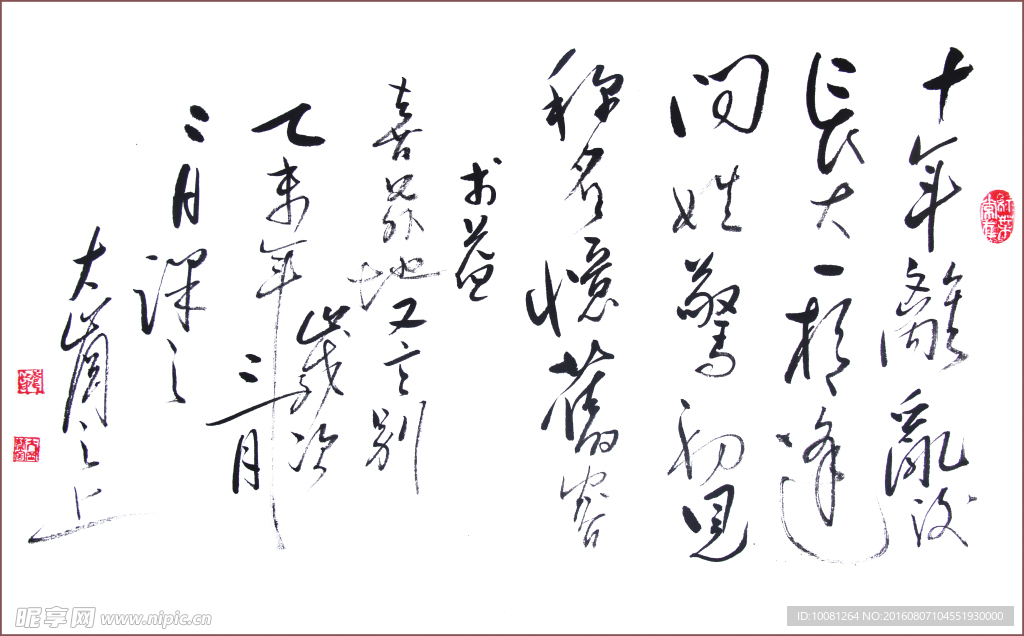 十年離亂後
長大一相逢
問姓驚初見
稱名憶舊容
益
喜見外地又言別
歲次
乙未年三月
二月課之
大之上
昵享网 www.nipic.cn
ID:10081264 NO:20160807104551930000